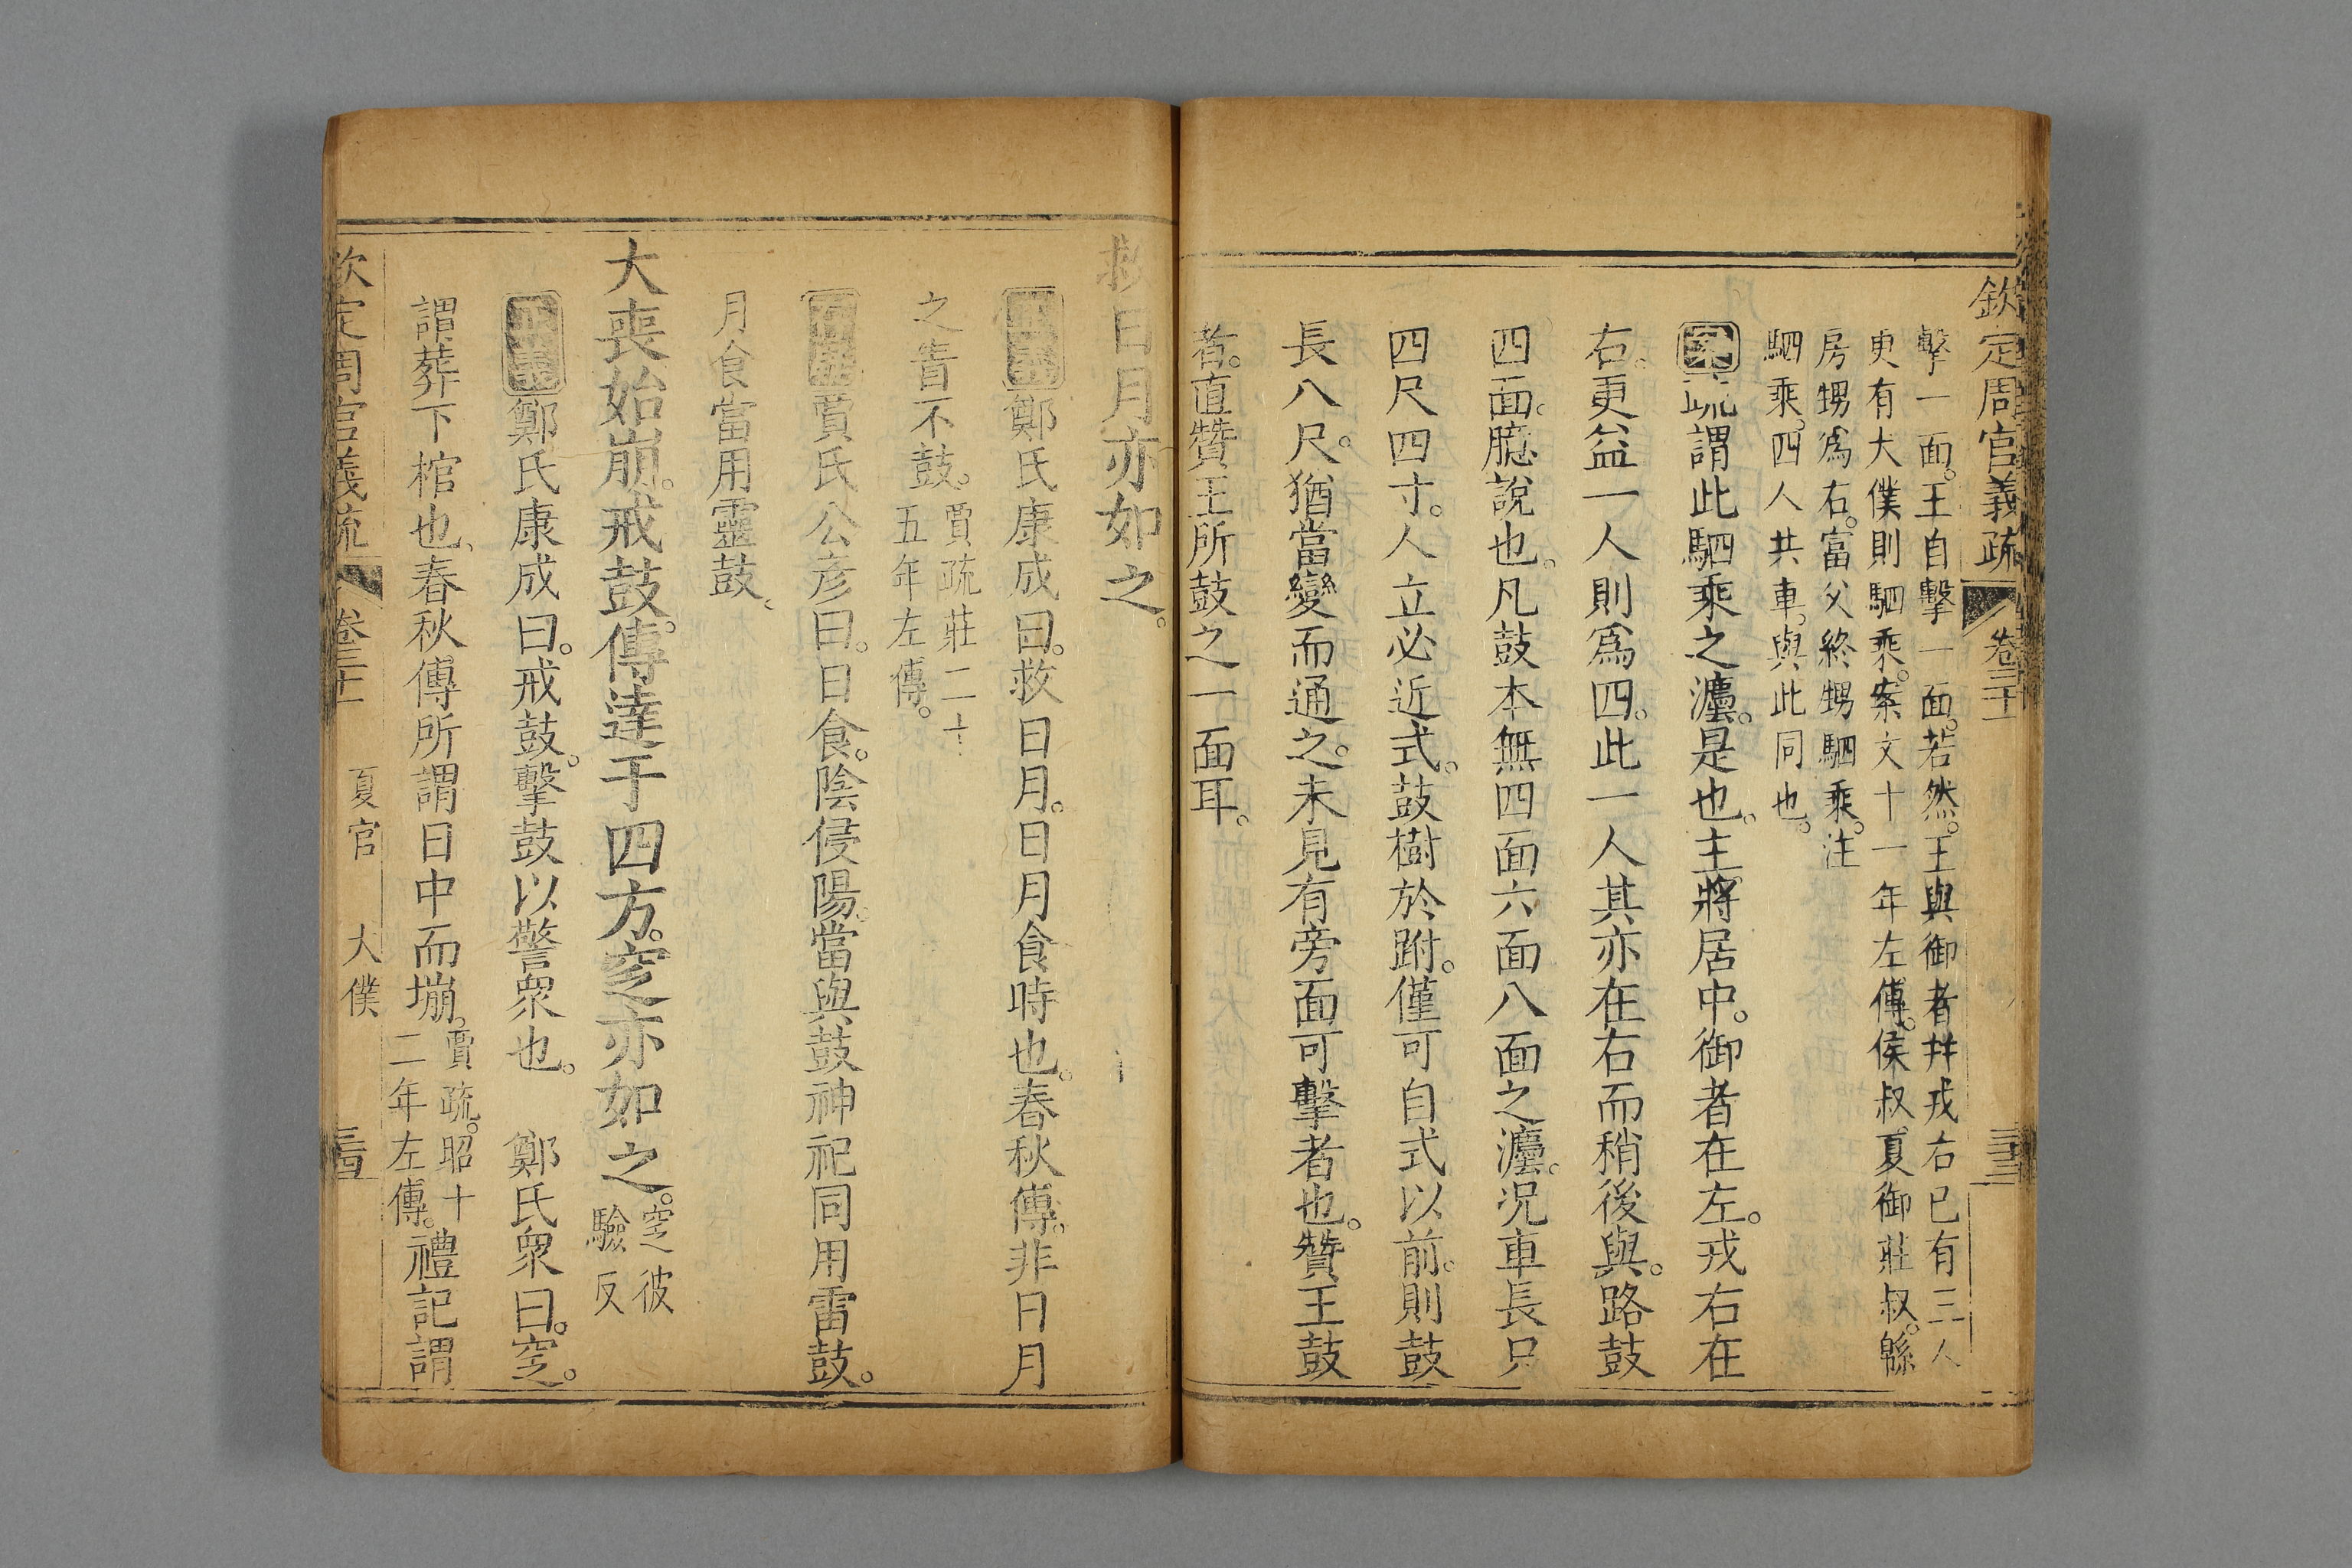 欽定周官義疏 卷三十一
擊一面。王自擊一面。若然。王與御者幷戎右已有三人
更有大僕則駟乘。案文十一年左傳。侯叔夏御莊叔。緜
房甥爲右。富父終甥駟乘。注
駟乘。四人共車。與此同也。
案疏謂此駟乘之灋。是也。主將居中。御者在左。戎右在
右。更益一人則爲四。此一人其亦在右而稍後與。路鼓
四面。臆說也。凡鼓本無四面六面八面之灋。況車長只
四尺四寸。人立必近式。鼓樹於跗。僅可自式以前。則鼓
長八尺。猶當變而通之。未見有旁面可擊者也。贊王鼓
者。直贊王所鼓之一面耳。
救日月亦如之。
正義鄭氏康成曰。救日月。日月食時也。春秋傳。非日月
之眚不鼓。賈疏莊二十
五年左傳。
賈氏公彥曰。日食。陰侵陽。當與鼓神祀同用雷鼓。
月食當用靈鼓。
大喪始崩。戒鼓。傳達于四方。窆亦如之。窆彼
驗反
正義鄭氏康成曰。戒鼓。擊鼓以警衆也。 鄭氏衆曰。窆。
謂葬下棺也、春秋傳所謂日中而塴。賈疏。昭十
二年左傳。禮記謂
欽定周官義疏 卷三十一 夏官 大僕